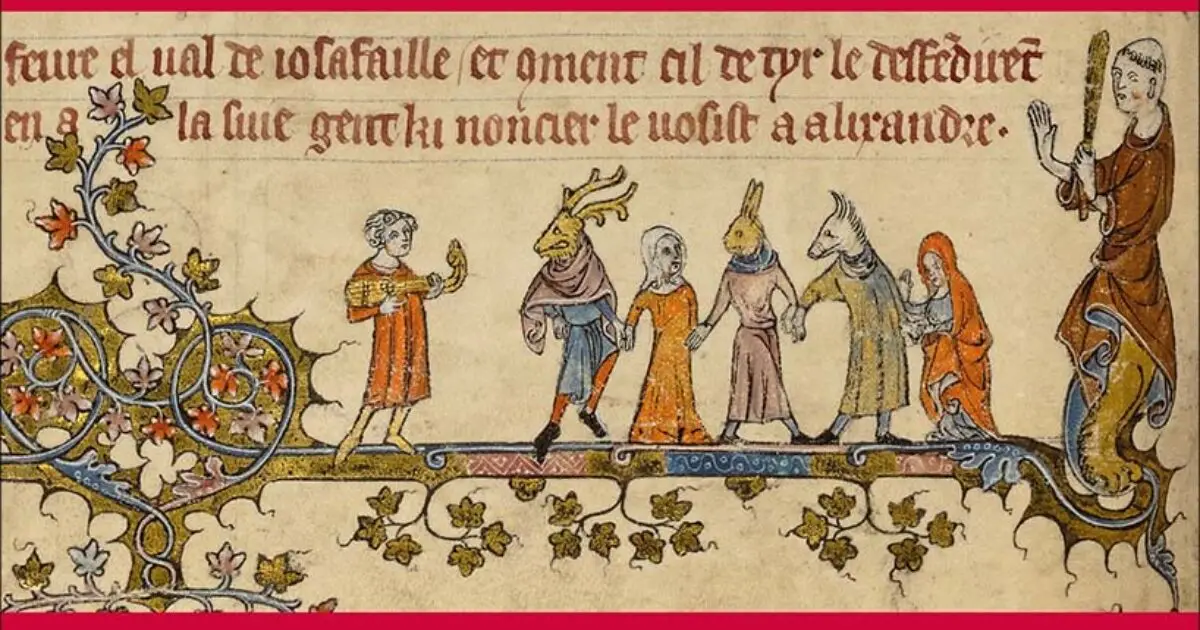 feure el ual de iosafaille / et ꝯment cil de tyr le deffēdirēt
en a la siue gent ki noncier le uosist a alixandre.